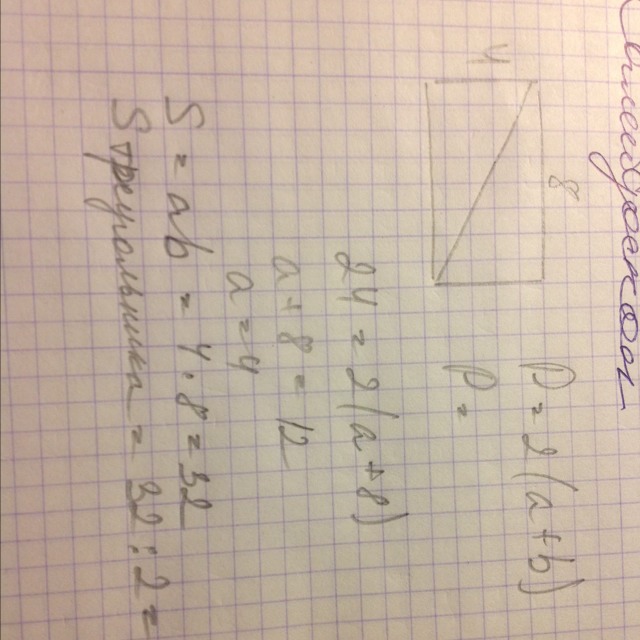 8
4
P = 2(a+b)
P =
24 = 2(a+8)
a+8 = 12
a = 4
S = ab = 4·8 = 32
S треугольника = 32:2 =